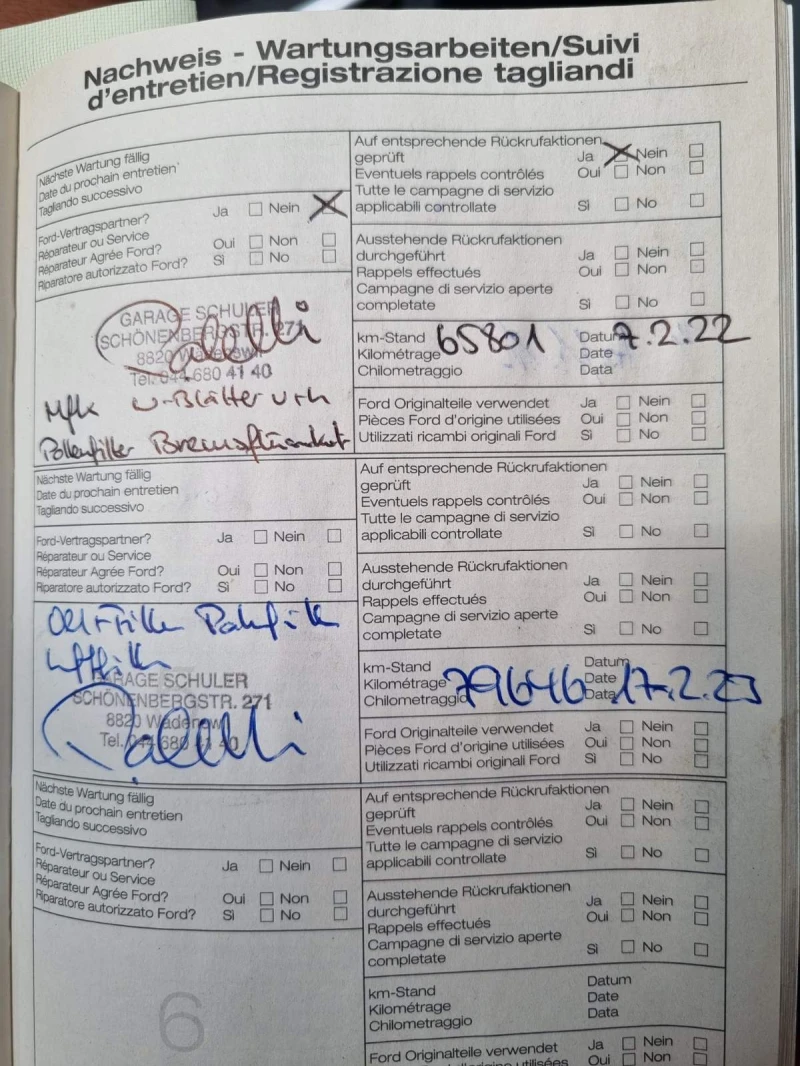 Nachweis - Wartungsarbeiten/Suivi
d'entretien/Registrazione tagliandi
Nächste Wartung fällig
Date du prochain entretien
Tagliando successivo
Ford-Vertragspartner? Ja Nein
Réparateur ou Service
Réparateur Agrée Ford? Oui Non
Riparatore autorizzato Ford? Sì No
GARAGE SCHULER
SCHÖNENBERGSTR. 271
8820 Wädenswil
Tel. 044 680 41 40
Mfk W-Blätter
Pollenfilter
Auf entsprechende Rückrufaktionen
geprüft Ja Nein
Eventuels rappels contrôlés Oui Non
Tutte le campagne di servizio
applicabili controllate Sì No
Ausstehende Rückrufaktionen
durchgeführt Ja Nein
Rappels effectués Oui Non
Campagne di servizio aperte
completate Sì No
km-Stand 65801 Datum 7.2.22
Kilométrage Date
Chilometraggio Data
Ford Originalteile verwendet Ja Nein
Pièces Ford d'origine utilisées Oui Non
Utilizzati ricambi originali Ford Sì No
Nächste Wartung fällig
Date du prochain entretien
Tagliando successivo
Ford-Vertragspartner? Ja Nein
Réparateur ou Service
Réparateur Agrée Ford? Oui Non
Riparatore autorizzato Ford? Sì No
GARAGE SCHULER
SCHÖNENBERGSTR. 271
8820 Wädenswil
Tel. 044 680 41 40
Auf entsprechende Rückrufaktionen
geprüft Ja Nein
Eventuels rappels contrôlés Oui Non
Tutte le campagne di servizio
applicabili controllate Sì No
Ausstehende Rückrufaktionen
durchgeführt Ja Nein
Rappels effectués Oui Non
Campagne di servizio aperte
completate Sì No
km-Stand Datum
Kilométrage 79646 Date 17.2.23
Chilometraggio Data
Ford Originalteile verwendet Ja Nein
Pièces Ford d'origine utilisées Oui Non
Utilizzati ricambi originali Ford Sì No
Nächste Wartung fällig
Date du prochain entretien
Tagliando successivo
Ford-Vertragspartner? Ja Nein
Réparateur ou Service
Réparateur Agrée Ford? Oui Non
Riparatore autorizzato Ford? Sì No
6
Auf entsprechende Rückrufaktionen
geprüft Ja Nein
Eventuels rappels contrôlés Oui Non
Tutte le campagne di servizio
applicabili controllate Sì No
Ausstehende Rückrufaktionen
durchgeführt Ja Nein
Rappels effectués Oui Non
Campagne di servizio aperte
completate Sì No
km-Stand Datum
Kilométrage Date
Chilometraggio Data
Ford Originalteile verwendet Ja Nein
Pièces Ford d'origine utilisées Oui Non